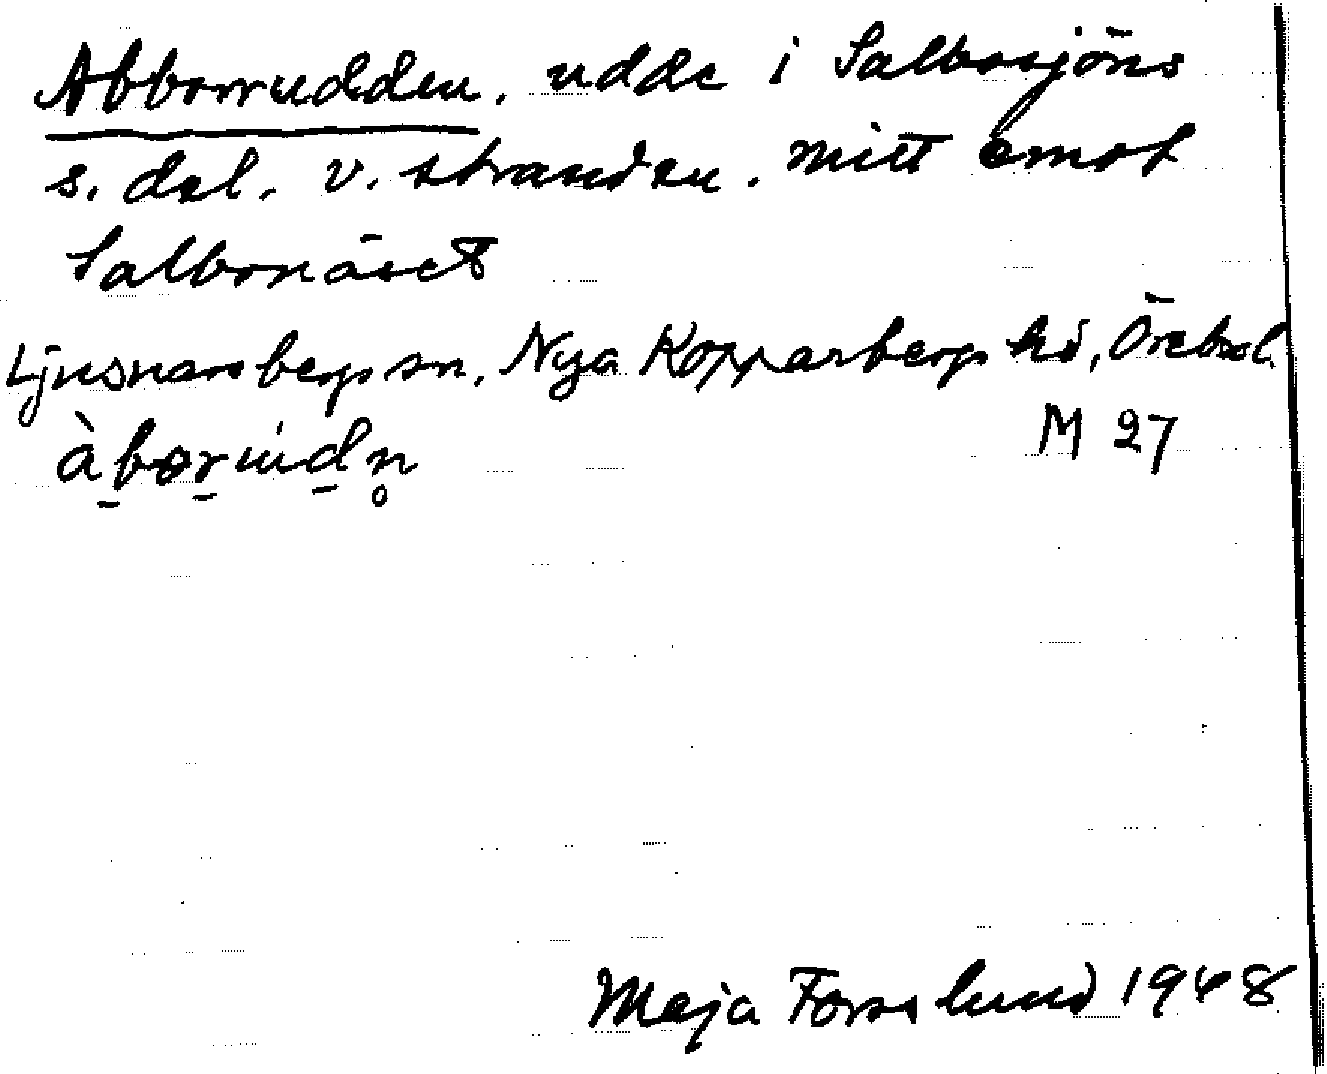 Abborrudden, udde i Salbosjöns
s. del. v. stranden. mitt emot
Salbonäset
Ljusnarsbergs sn, Nya Kopparbergs hd, Örebro l.
M 27
Maja Forsslund 1948